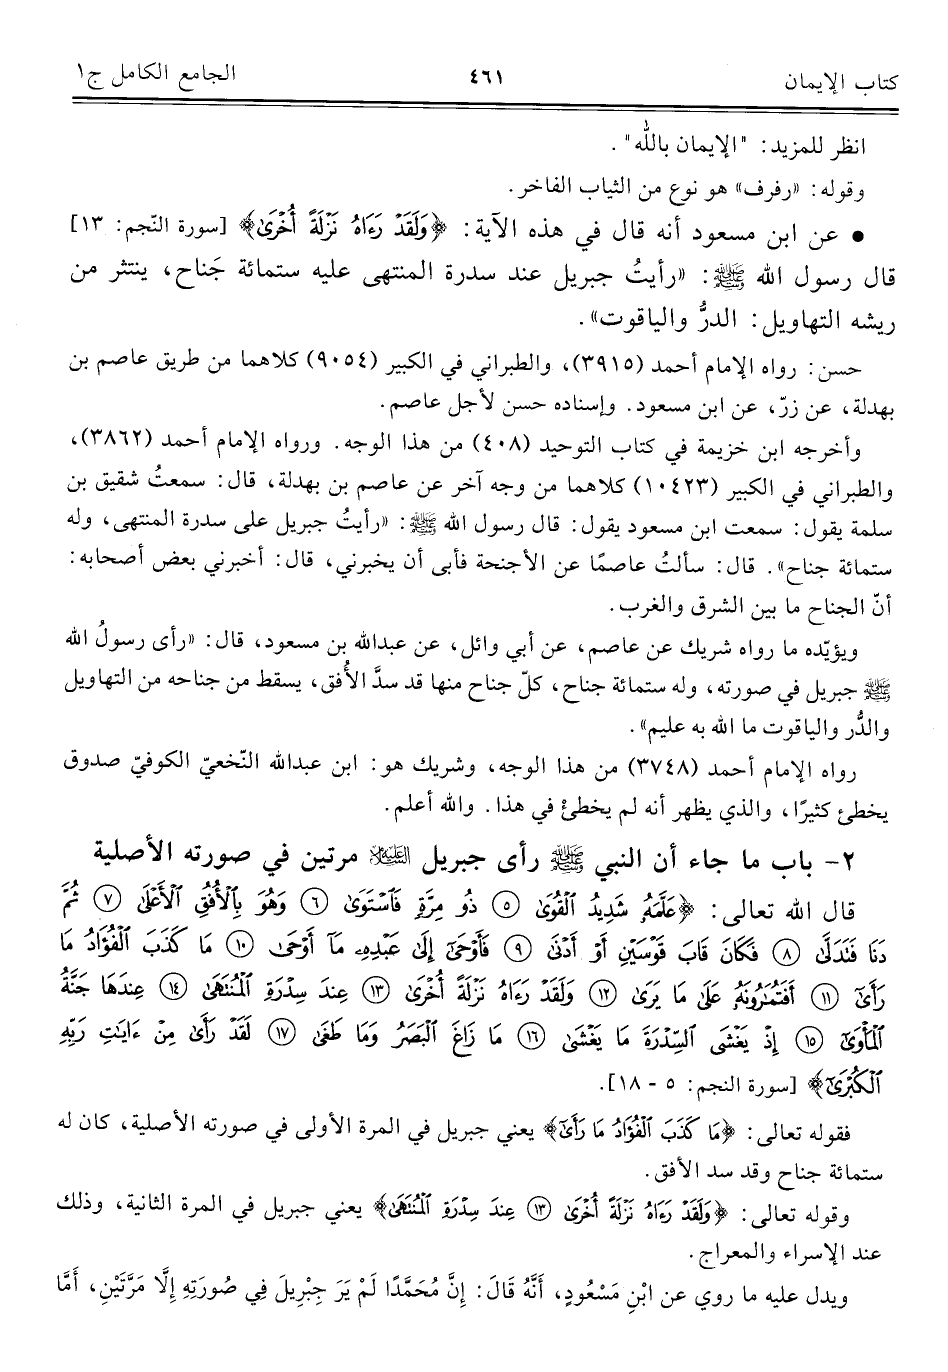 كتاب الإيمان ٤٦١ الجامع الكامل ج١
انظر للمزيد: "الإيمان بالله".
وقوله: «رفرف» هو نوع من الثياب الفاخر.
● عن ابن مسعود أنه قال في هذه الآية: ﴿وَلَقَدۡ رَءَاهُ نَزۡلَةً أُخۡرَىٰ﴾ [سورة النّجم: ١٣]
قال رسول الله ﷺ: «رأيتُ جبريل عند سدرة المنتهى عليه ستمائة جَناح، ينتثر من
ريشه التهاويل: الدرُّ والياقوت».
حسن: رواه الإمام أحمد (٣٩١٥)، والطبراني في الكبير (٩٠٥٤) كلاهما من طريق عاصم بن
بهدلة، عن زرّ، عن ابن مسعود. وإسناده حسن لأجل عاصم.
وأخرجه ابن خزيمة في كتاب التوحيد (٤٠٨) من هذا الوجه. ورواه الإمام أحمد (٣٨٦٢)،
والطبراني في الكبير (١٠٤٢٣) كلاهما من وجه آخر عن عاصم بن بهدلة، قال: سمعتُ شقيق بن
سلمة يقول: سمعت ابن مسعود يقول: قال رسول الله ﷺ: «رأيتُ جبريل على سدرة المنتهى، وله
ستمائة جناح». قال: سألتُ عاصمًا عن الأجنحة فأبى أن يخبرني، قال: أخبرني بعض أصحابه:
أنّ الجناح ما بين الشرق والغرب.
ويؤيّده ما رواه شريك عن عاصم، عن أبي وائل، عن عبدالله بن مسعود، قال: «رأى رسولُ الله
ﷺ جبريل في صورته، وله ستمائة جناح، كلّ جناح منها قد سدَّ الأُفق، يسقط من جناحه من التهاويل
والدُّر والياقوت ما الله به عليم».
رواه الإمام أحمد (٣٧٤٨) من هذا الوجه، وشريك هو: ابن عبدالله النّخعيّ الكوفيّ صدوق
يخطئ كثيرًا، والذي يظهر أنه لم يخطئ في هذا. والله أعلم.
٢- باب ما جاء أن النبي ﷺ رأى جبريل عليه السلام مرتين في صورته الأصلية
قال الله تعالى: ﴿عَلَّمَهُۥ شَدِيدُ ٱلۡقُوَىٰ ٥ ذُو مِرَّةٖ فَٱسۡتَوَىٰ ٦ وَهُوَ بِٱلۡأُفُقِ ٱلۡأَعۡلَىٰ ٧ ثُمَّ
دَنَا فَتَدَلَّىٰ ٨ فَكَانَ قَابَ قَوۡسَيۡنِ أَوۡ أَدۡنَىٰ ٩ فَأَوۡحَىٰٓ إِلَىٰ عَبۡدِهِۦ مَآ أَوۡحَىٰ ١٠ مَا كَذَبَ ٱلۡفُؤَادُ مَا
رَأَىٰٓ ١١ أَفَتُمَٰرُونَهُۥ عَلَىٰ مَا يَرَىٰ ١٢ وَلَقَدۡ رَءَاهُ نَزۡلَةً أُخۡرَىٰ ١٣ عِندَ سِدۡرَةِ ٱلۡمُنتَهَىٰ ١٤ عِندَهَا جَنَّةُ
ٱلۡمَأۡوَىٰٓ ١٥ إِذۡ يَغۡشَى ٱلسِّدۡرَةَ مَا يَغۡشَىٰ ١٦ مَا زَاغَ ٱلۡبَصَرُ وَمَا طَغَىٰ ١٧ لَقَدۡ رَأَىٰ مِنۡ ءَايَٰتِ رَبِّهِ
ٱلۡكُبۡرَىٰٓ﴾ [سورة النجم: ٥ - ١٨].
فقوله تعالى: ﴿مَا كَذَبَ ٱلۡفُؤَادُ مَا رَأَىٰٓ﴾ يعني جبريل في المرة الأولى في صورته الأصلية، كان له
ستمائة جناح وقد سد الأفق.
وقوله تعالى: ﴿وَلَقَدۡ رَءَاهُ نَزۡلَةً أُخۡرَىٰ ١٣ عِندَ سِدۡرَةِ ٱلۡمُنتَهَىٰ﴾ يعني جبريل في المرة الثانية، وذلك
عند الإسراء والمعراج.
ويدل عليه ما روي عن ابْنِ مَسْعُودٍ، أَنَّهُ قَالَ: إِنَّ مُحَمَّدًا لَمْ يَرَ جِبْرِيلَ فِي صُورَتِهِ إِلَّا مَرَّتَيْنِ، أَمَّا